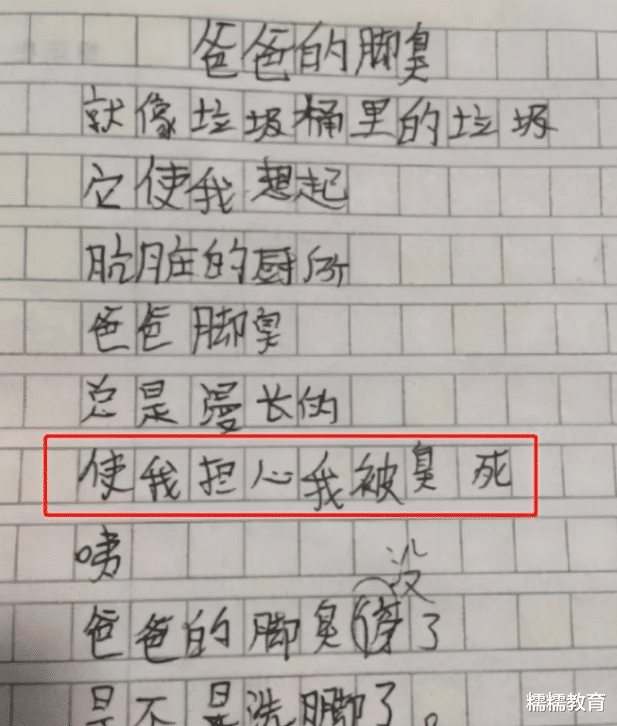 爸爸的脚臭
就像垃圾桶里的垃圾
它使我想起
肮脏的厕所
爸爸脚臭
总是漫长的
使我担心我被臭死
咦
没
爸爸的脚臭了
是不是洗脚了。
糯糯教育